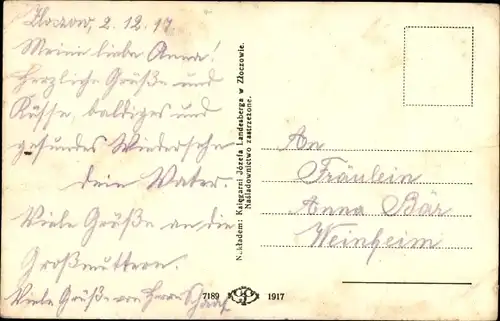 Zloczow, 2.12.17
Meine liebe Anna!
Herzliche Grüße und
Küsse, baldiges und
gesundes Wiedersehn
Dein Vater.
Viele Grüße an die
Großmuttern.
Viele Grüße von Herrn Schaaf
Nakładem: Księgarni Józefa Landesberga w Złoczowie.
Naśladownictwo zastrzeżone.
7189 1917
An
Fräulein
Anna Bär
Weinheim